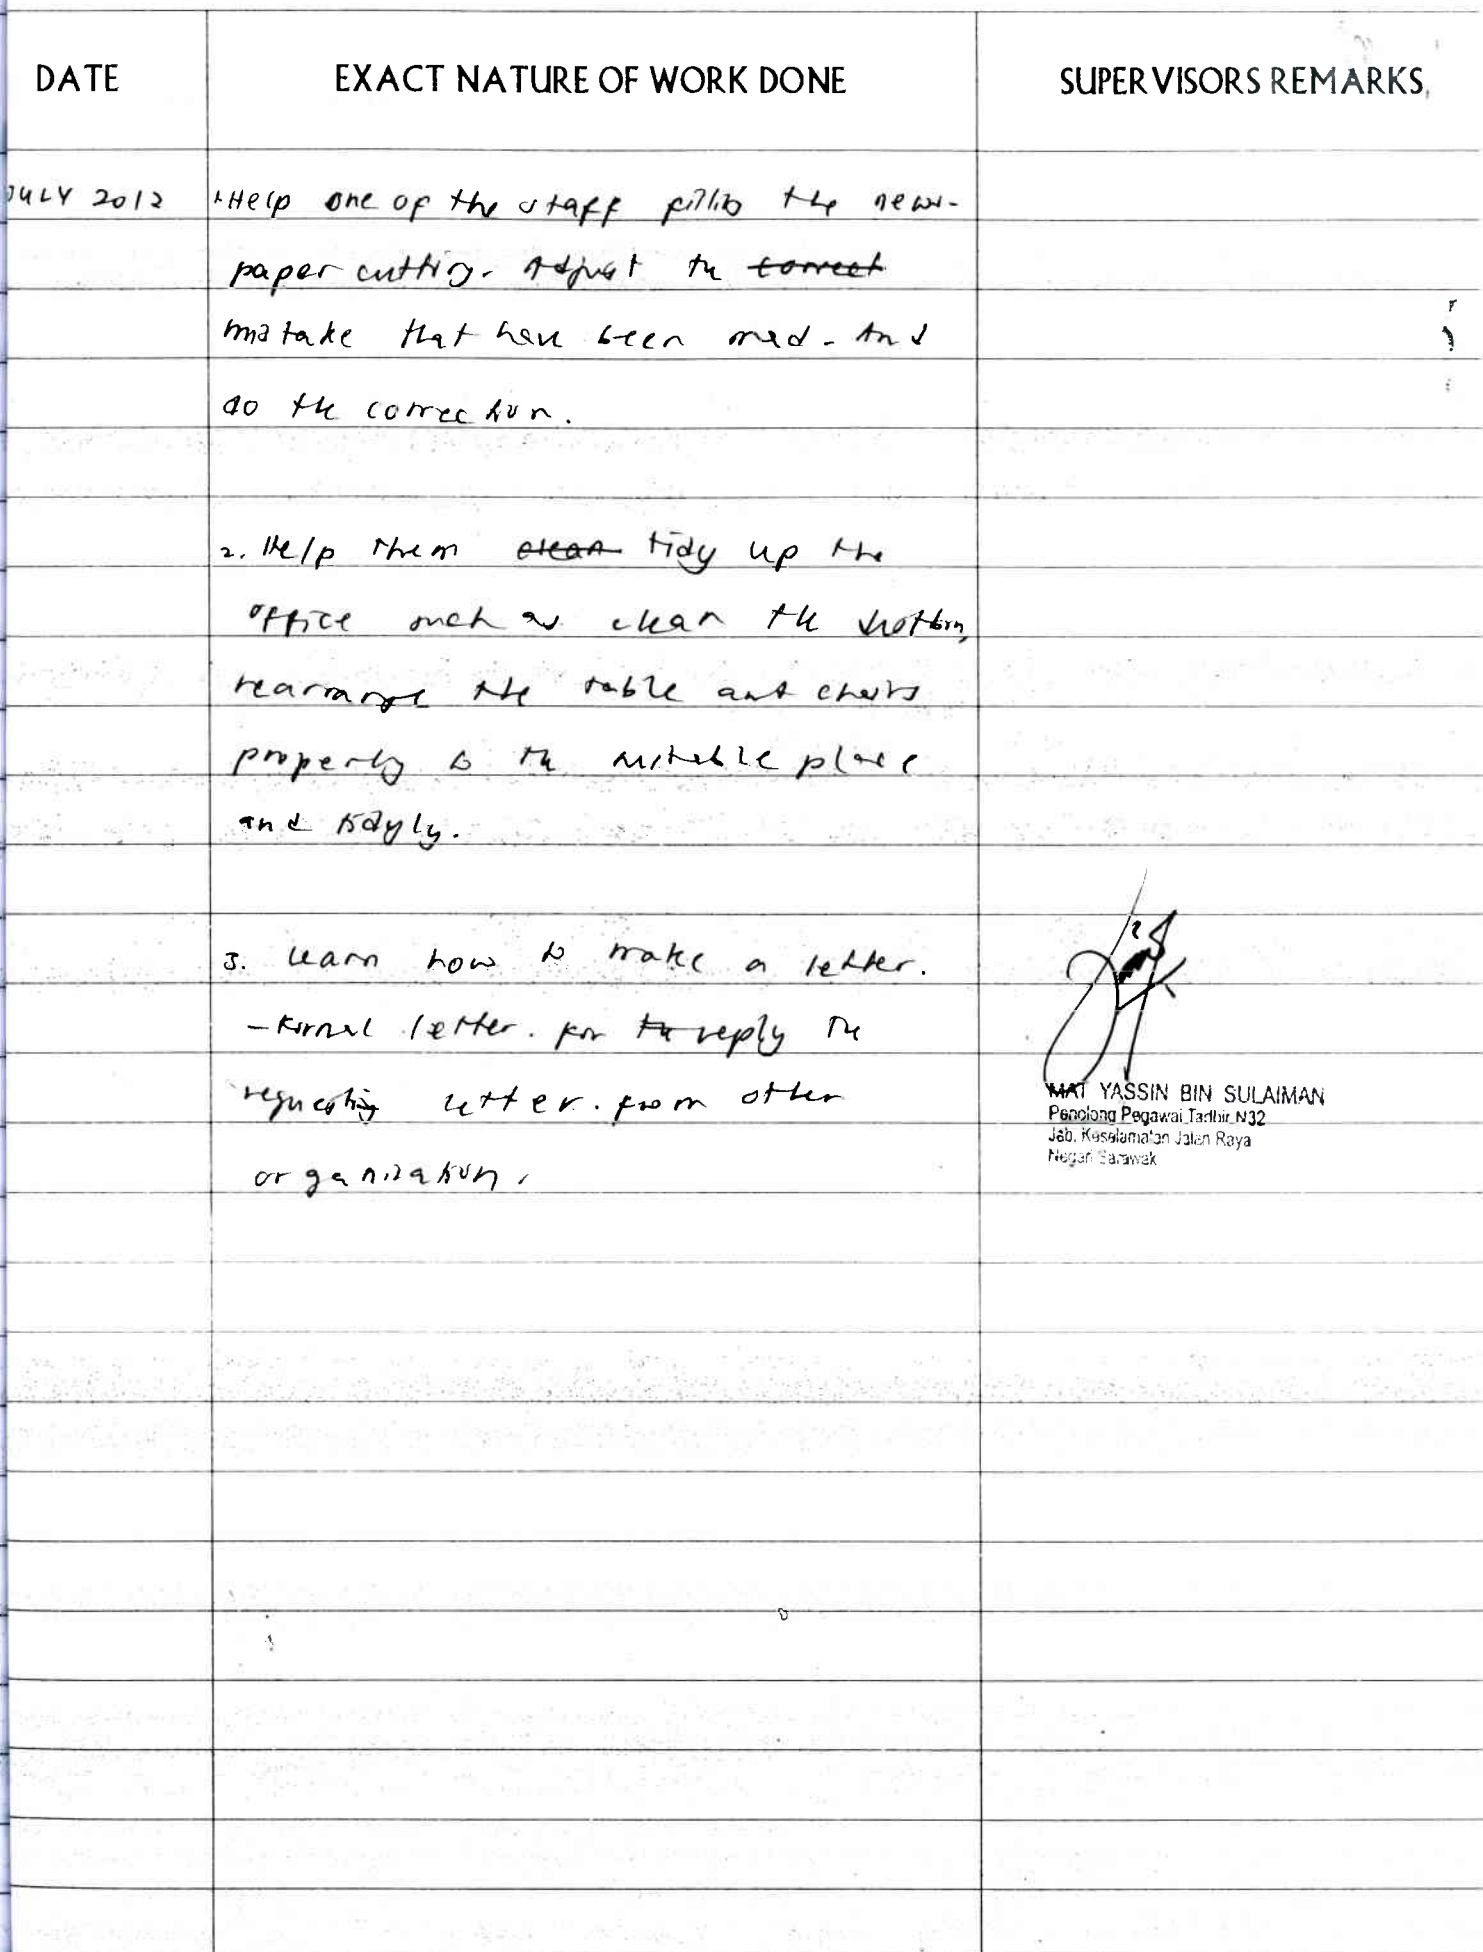 DATE EXACT NATURE OF WORK DONE SUPERVISORS REMARKS
JULY 2012 1. Help one of the staff filling the news-
paper cutting. Adjust the correct
mistake that have been mad. And
do the correction.
2. Help them clean tidy up the
office such as clean the
rearrange the table and chairs
properly to the suitable place
and tidyly.
3. Learn how to make a letter.
- Formal letter. for the reply the
requesting letter. from other
organization.
MAT YASSIN BIN SULAIMAN
Penolong Pegawai Tadbir N32
Jab. Keselamatan Jalan Raya
Negeri Sarawak